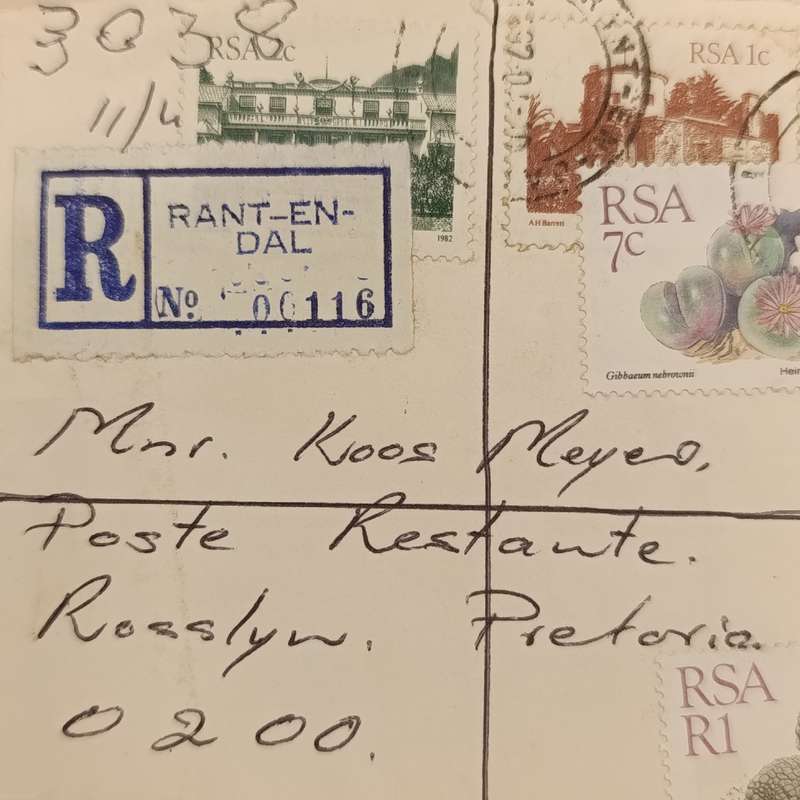 3038
11/4
RSA 2c
1982
RSA 1c
AH Barrett
RSA
7c
Gibbaeum nebrownii
R
RANT-EN-
DAL
No 00116
Mnr. Koos Meyer,
Poste Restante.
Rosslyn. Pretoria.
0200.
RSA
R1